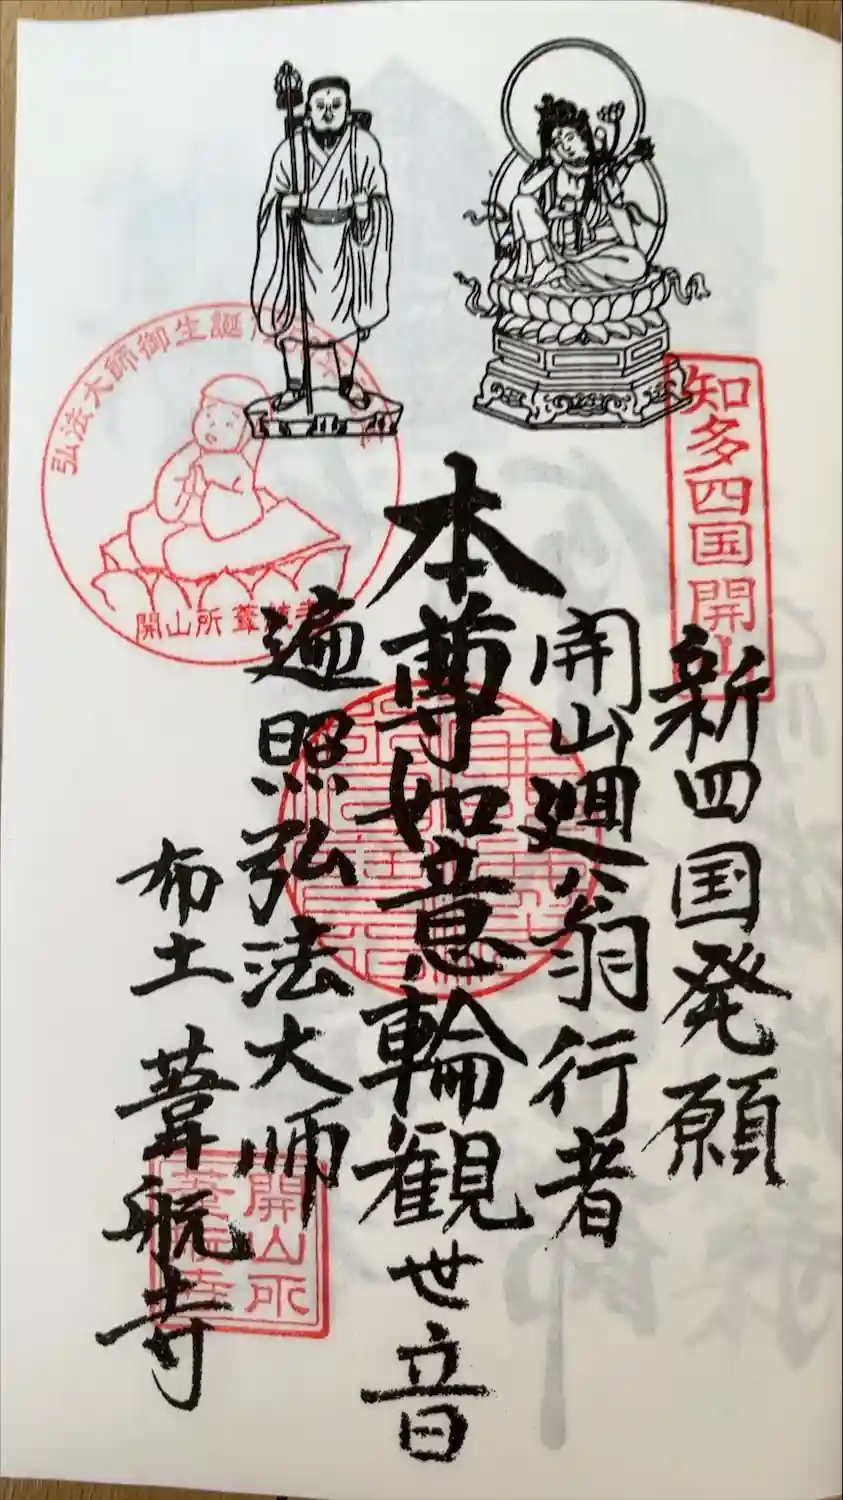 知多四国開山
新四国発願
開山廻翁行者
本尊如意輪観世音
遍照弘法大師
布土 葦航寺
弘法大師御生誕
開山所 葦航寺
開山所
葦航寺